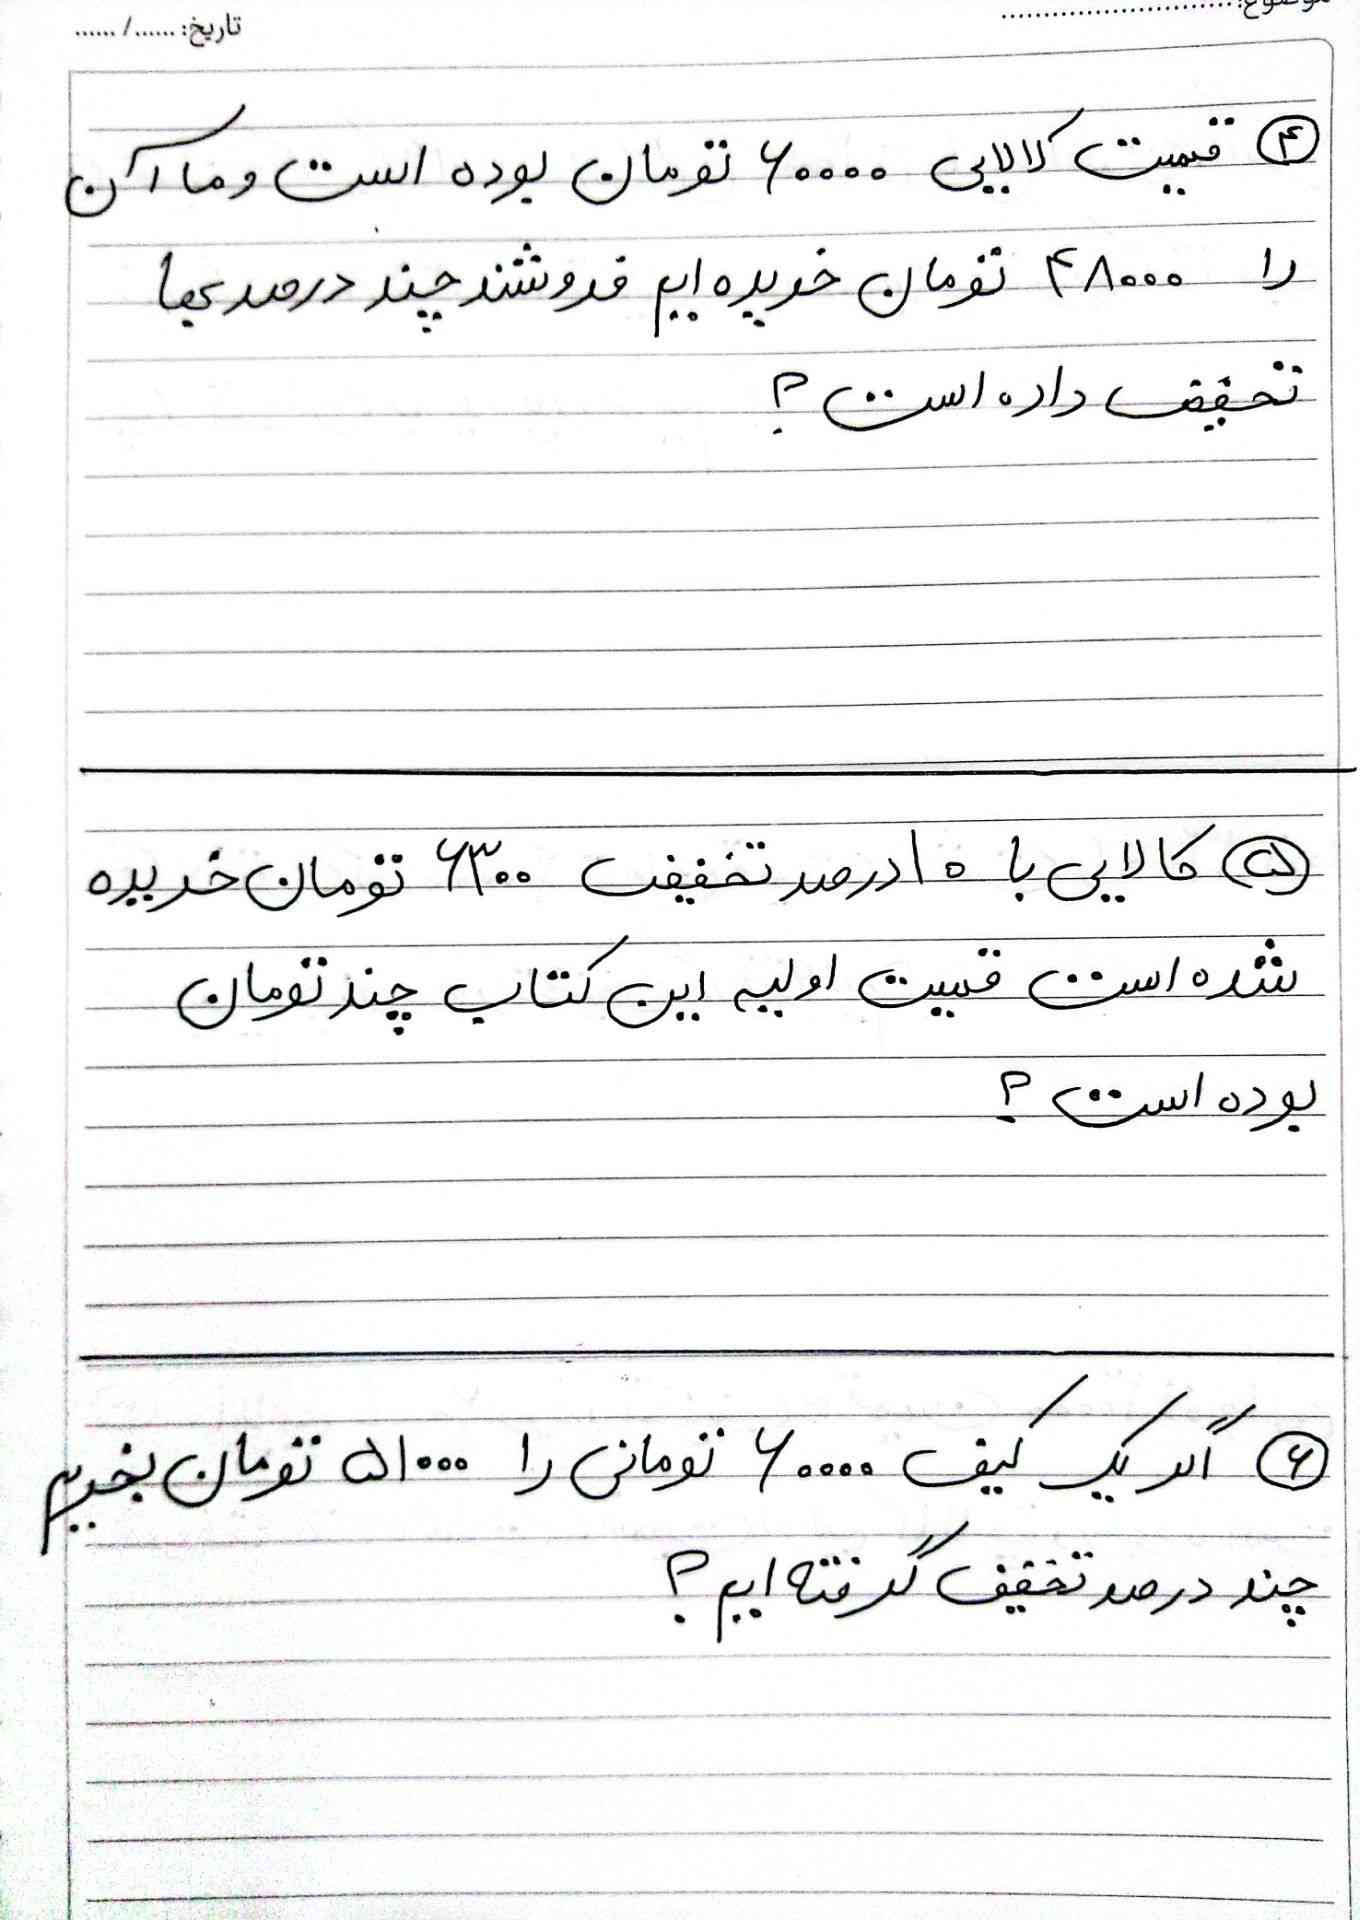 موضوع: ............................
تاریخ: ....../ ......
۴ قیمت کالایی ۶۰۰۰۰ تومان بوده است و ما آن
را ۴۸۰۰۰ تومان خریده ایم فروشند چند درصد بما
تخفیف داده است ؟
۵ کالایی با ۱۰ درصد تخفیف ۶۳۰۰ تومان خریده
شده است قیمت اولیه این کتاب چند تومان
بوده است ؟
۶ اگر یک کیف ۶۰۰۰۰ تومانی را ۵۱۰۰۰ تومان بخریم
چند درصد تخفیف گرفته ایم ؟